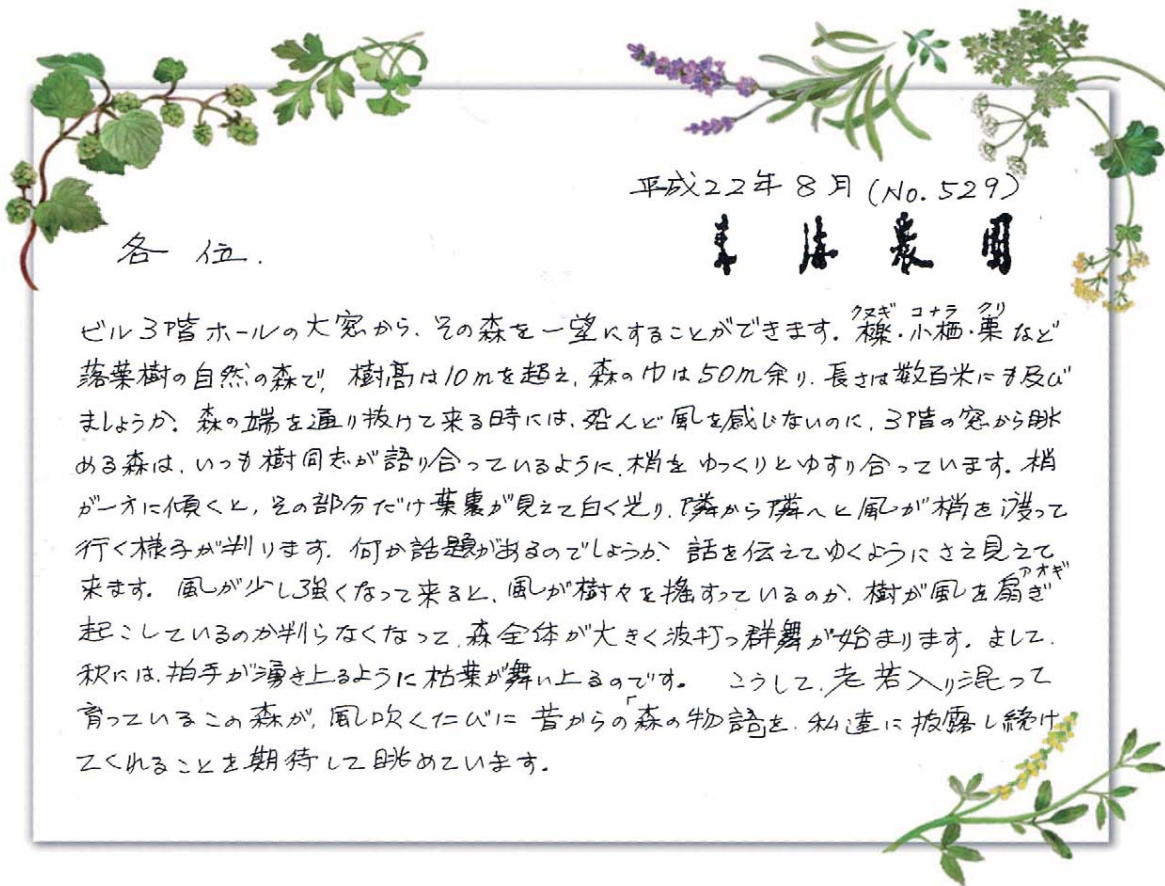 平成22年8月(No.529)
農園
各位.
ビル3階ホールの大窓から、その森を一望にすることができます。櫟(クヌギ)・小楢(コナラ)・栗(クリ)など
落葉樹の自然の森で、樹高は10mを超え、森の巾は50m余り、長さは数百米にも及び
ましょうか。森の端を通り抜けて来る時には、殆んど風を感じないのに、3階の窓から眺
める森は、いつも樹同志が語り合っているように、梢をゆっくりとゆすり合っています。梢
が一方に傾くと、その部分だけ葉裏が見えて白く光り、隣から隣へと風が梢を渡って
行く様子が判ります。何か話題があるのでしょうか、話を伝えてゆくようにさえ見えて
来ます。風が少し強くなって来ると、風が樹々を揺すっているのか、樹が風を扇(アオギ)ぎ
起こしているのか判らなくなって、森全体が大きく波打つ群舞が始まります。まして、
秋には、拍手が湧き上るように枯葉が舞い上るのです。 こうして、老若入り混って
育っているこの森が、風吹くたびに昔からの「森の物語」を、私達に披露し続け
てくれることを期待して眺めています。